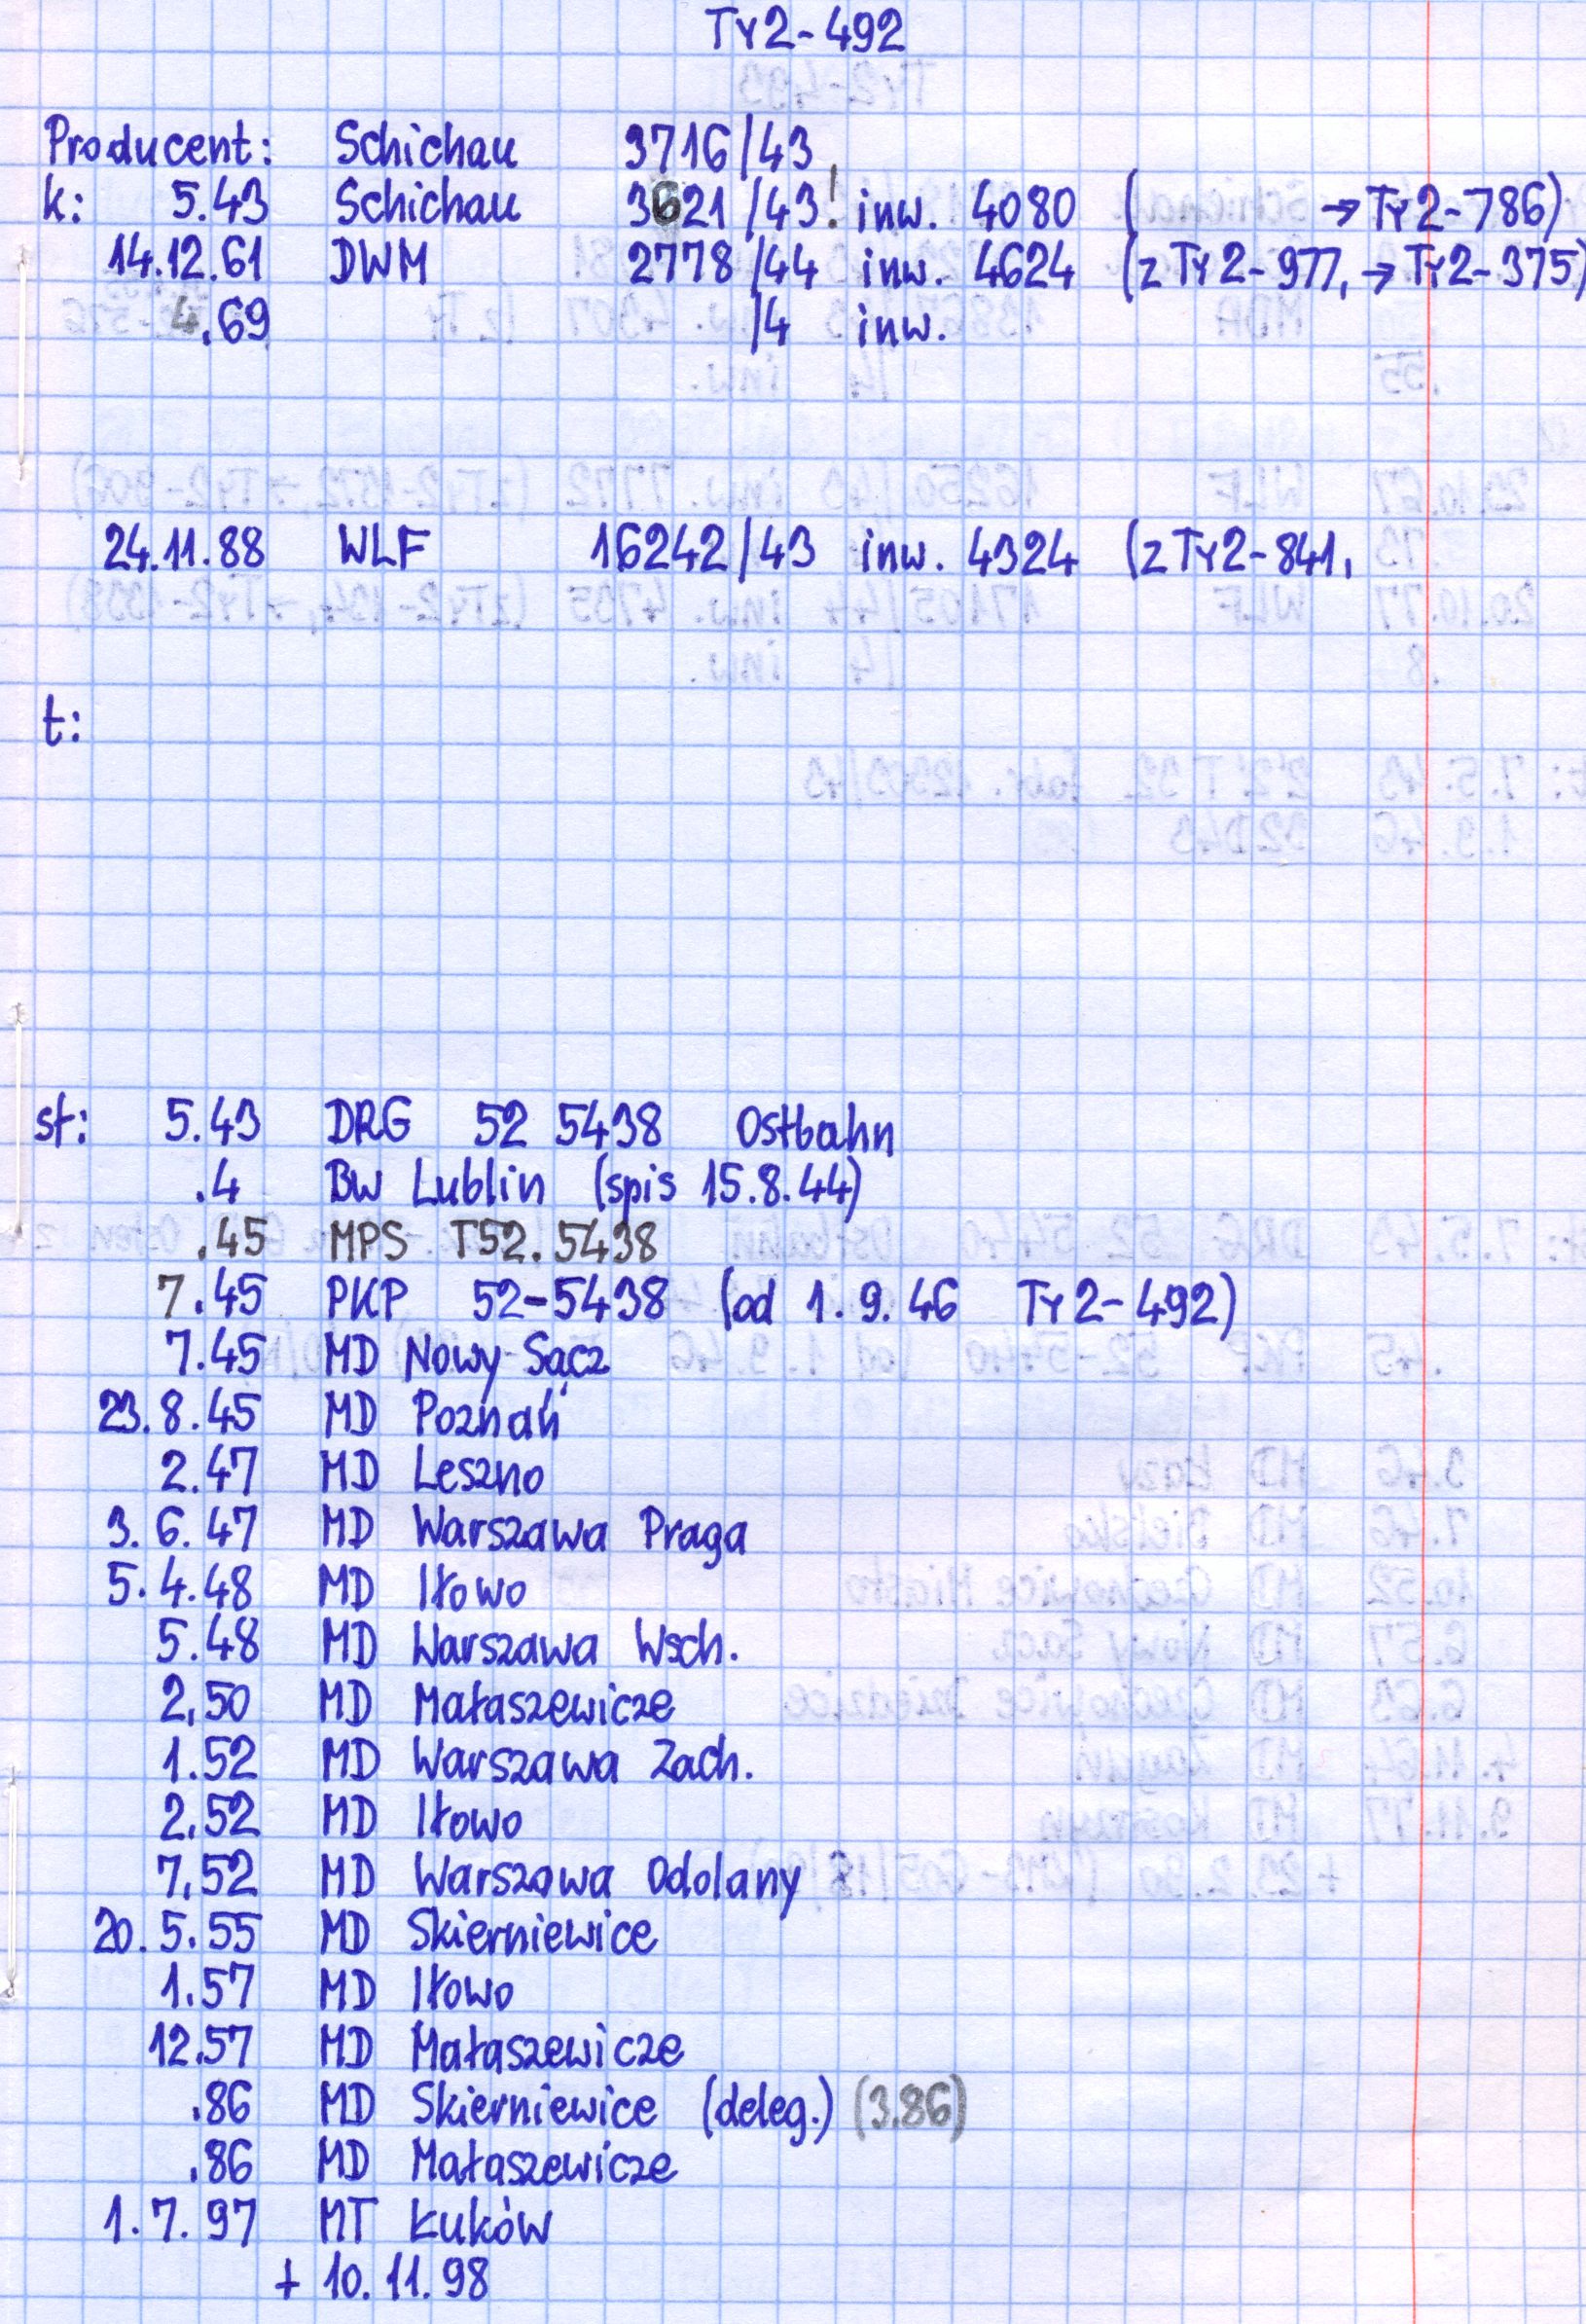 Ty2-492
Producent: Schichau 3716/43
k: 5.43 Schichau 3621/43! inw. 4080 ( → Ty2-786)
14.12.61 DWM 2778/44 inw. 4624 (z Ty2-977, → Ty2-375)
4.69 /4 inw.
24.11.88 WLF 16242/43 inw. 4324 (z Ty2-841,
t:
st: 5.43 DRG 52 5438 Ostbahn
.4 Bw Lublin (spis 15.8.44)
.45 MPS T52.5438
7.45 PKP 52-5438 (od 1.9.46 Ty2-492)
7.45 MD Nowy Sącz
23.8.45 MD Poznań
2.47 MD Leszno
3.6.47 MD Warszawa Praga
5.4.48 MD Iłowo
5.48 MD Warszawa Wsch.
2.50 MD Małaszewicze
1.52 MD Warszawa Zach.
2.52 MD Iłowo
7.52 MD Warszawa Odolany
20.5.55 MD Skierniewice
1.57 MD Iłowo
12.57 MD Małaszewicze
.86 MD Skierniewice (deleg.) (3.86)
.86 MD Małaszewicze
1.7.97 MT Łuków
+ 10.11.98